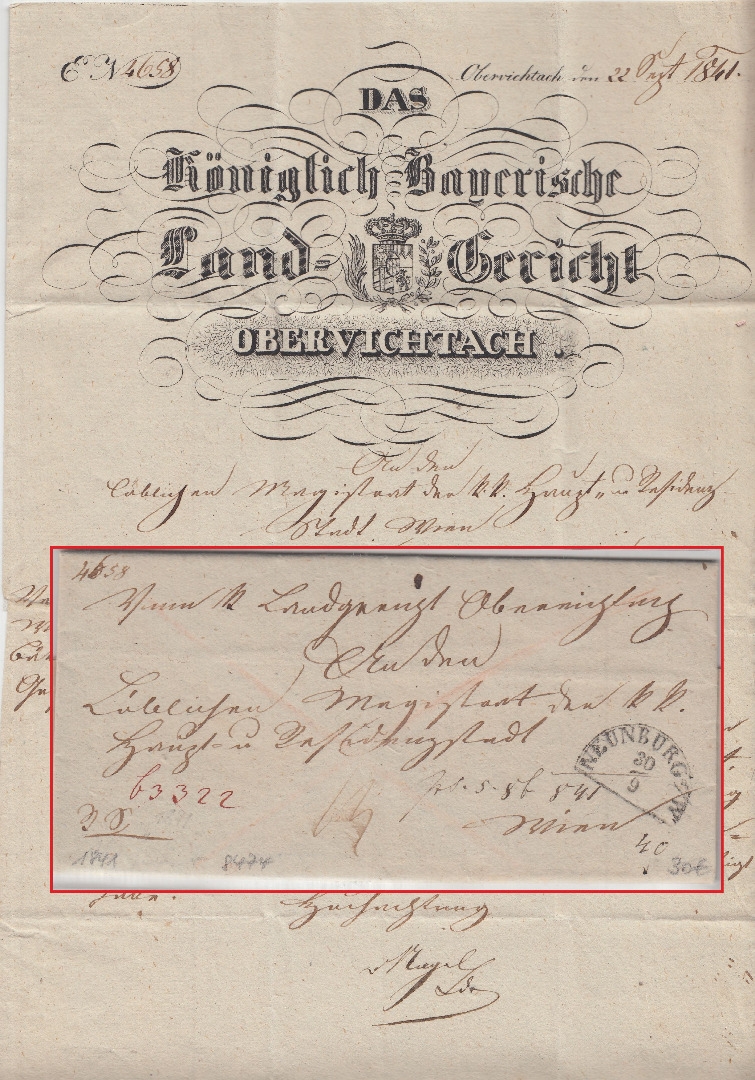 E N 4658
Obervichtach den 22 Sept 1841.
DAS
Königlich Bayerische
Land-Gericht
OBERVICHTACH.
An den
löblichen Magistrat der k. k. Haupt- u Residenz
Stadt Wien
4658
Vom K Landgericht Obervichtach
An den
Löblichen Magistrat der k k.
Haupt- u Residenzstadt
NEUNBURG
30
9
63322
841
Wien
40
1841
8474
30€
Hochachtung